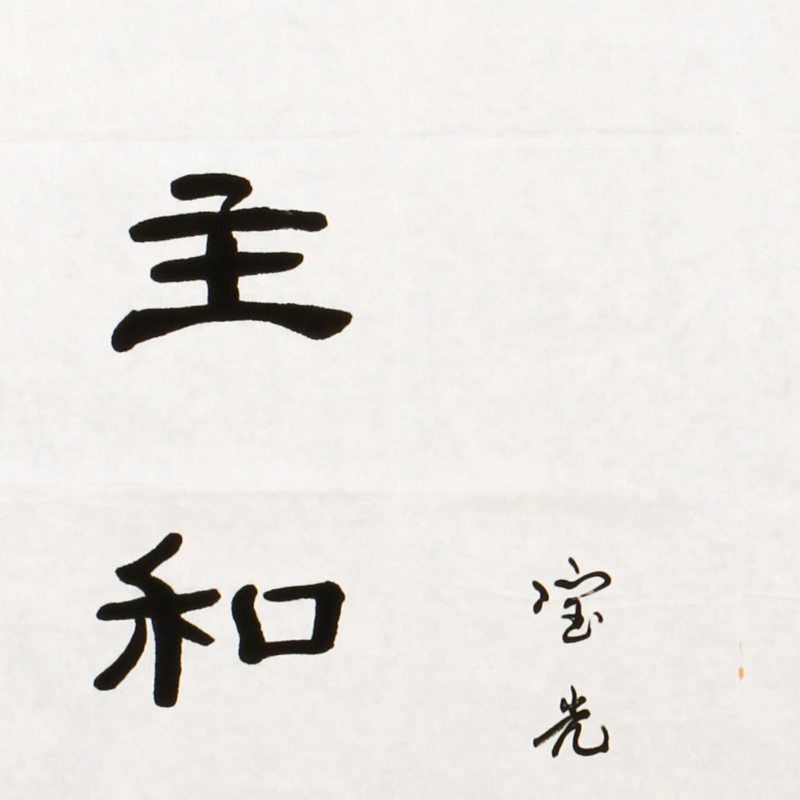 宝光
主和